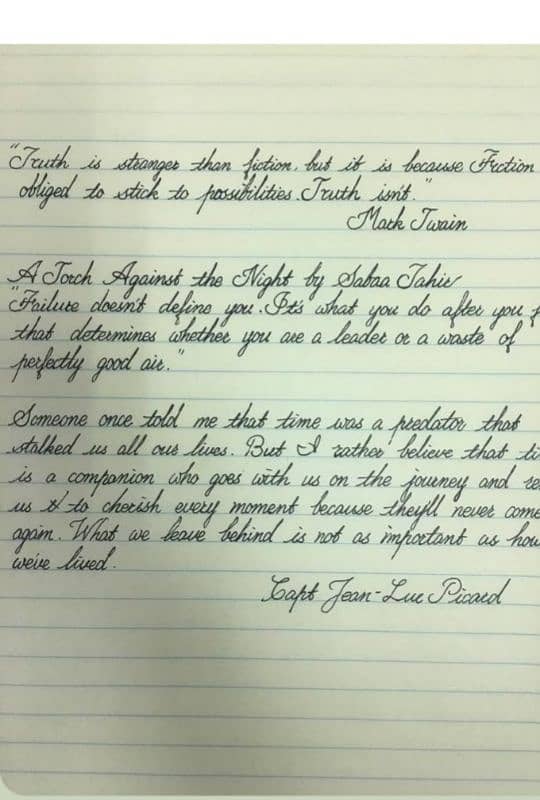 "Truth is stranger than fiction, but it is because Fiction
obliged to stick to possibilities. Truth isn't."
Mark Twain
A Torch Against the Night by Sabaa Tahir
"Failure doesn't define you. It's what you do after you f
that determines whether you are a leader or a waste of
perfectly good air."
Someone once told me that time was a predator that
stalked us all our lives. But I rather believe that ti
is a companion who goes with us on the journey and re
us to cherish every moment because they'll never come
again. What we leave behind is not as important as how
we've lived.
Capt Jean-Luc Picard